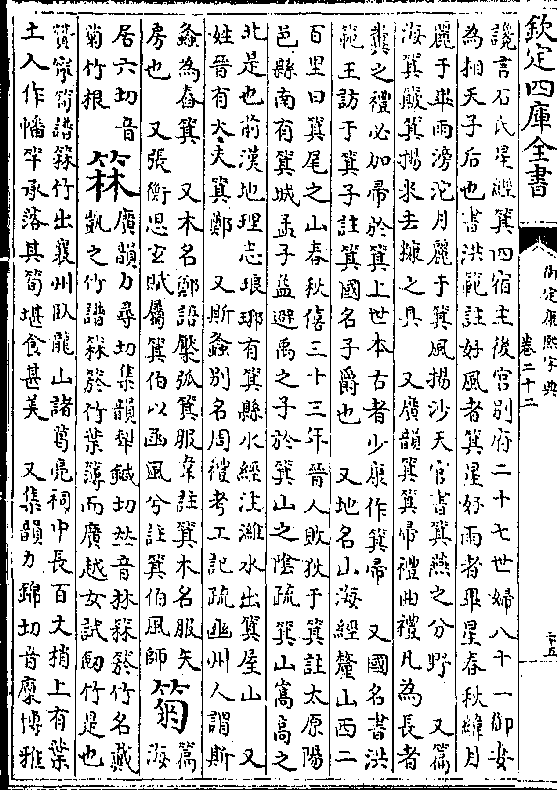 欽定四庫全書
御定康熙字典
卷二十二
讒言石氏星經箕四宿主後宮別府二十七世婦八十一御女
為相天子后也書洪範註好風者箕星好雨者畢星春秋緯月
麗于畢雨滂沱月麗于箕風揚沙天官書箕燕之分野　又篇
海箕簸箕揚米去糠之具　又廣韻箕箕帚禮曲禮凡為長者
糞之禮必加帚於箕上世本古者少康作箕帚　又國名書洪
範王訪于箕子註箕國名子爵也　又地名山海經釐山西二
百里曰箕尾之山春秋僖三十三年晉人敗狄于箕註太原陽
邑縣南有箕城孟子益避禹之子於箕山之陰疏箕山嵩高之
北是也前漢地理志琅琊有箕縣水經注濰水出箕屋山　又
姓晉有大夫箕鄭　又斯螽別名周禮考工記疏幽州人謂斯
螽為舂箕　又木名鄭語檿弧箕服韋註箕木名服矢
房也　又張衡思玄賦屬箕伯以函風兮註箕伯風師　䈮篇海
居六切音
菊竹根　箖廣韻力尋切集韻犂鍼切𠀤音林箖箊竹名戴
凱之竹譜箖箊竹葉薄而廣越女試劒竹是也
贊寧筍譜箖竹出襄州臥龍山諸葛亮祠中長百丈梢上有葉
土人作幡竿承落其筍堪食甚美　又集韻力錦切音廩博雅